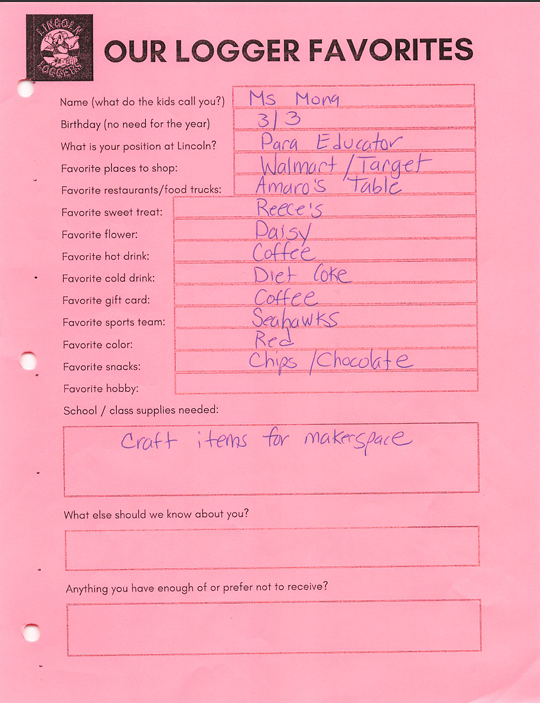 LINCOLN
LOGGERS
OUR LOGGER FAVORITES
Name (what do the kids call you?) Ms Mona
Birthday (no need for the year) 3/3
What is your position at Lincoln? Para Educator
Favorite places to shop: Walmart / Target
Favorite restaurants/food trucks: Amaro's Table
Favorite sweet treat: Reece's
Favorite flower: Daisy
Favorite hot drink: Coffee
Favorite cold drink: Diet Coke
Favorite gift card: Coffee
Favorite sports team: Seahawks
Favorite color: Red
Favorite snacks: Chips / Chocolate
Favorite hobby:
School / class supplies needed:
Craft items for makerspace
What else should we know about you?
Anything you have enough of or prefer not to receive?